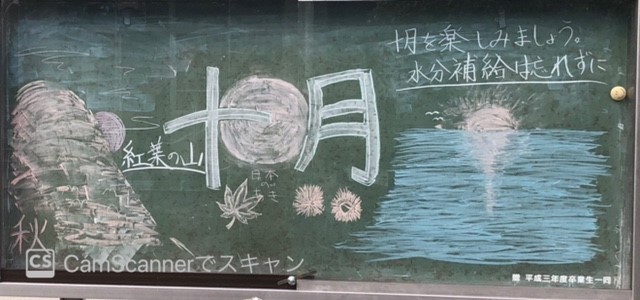 十月を楽しみましょう。
水分補給は忘れずに
十月
紅葉の山
秋
CS CamScannerでスキャン
平成三年度卒業生一同